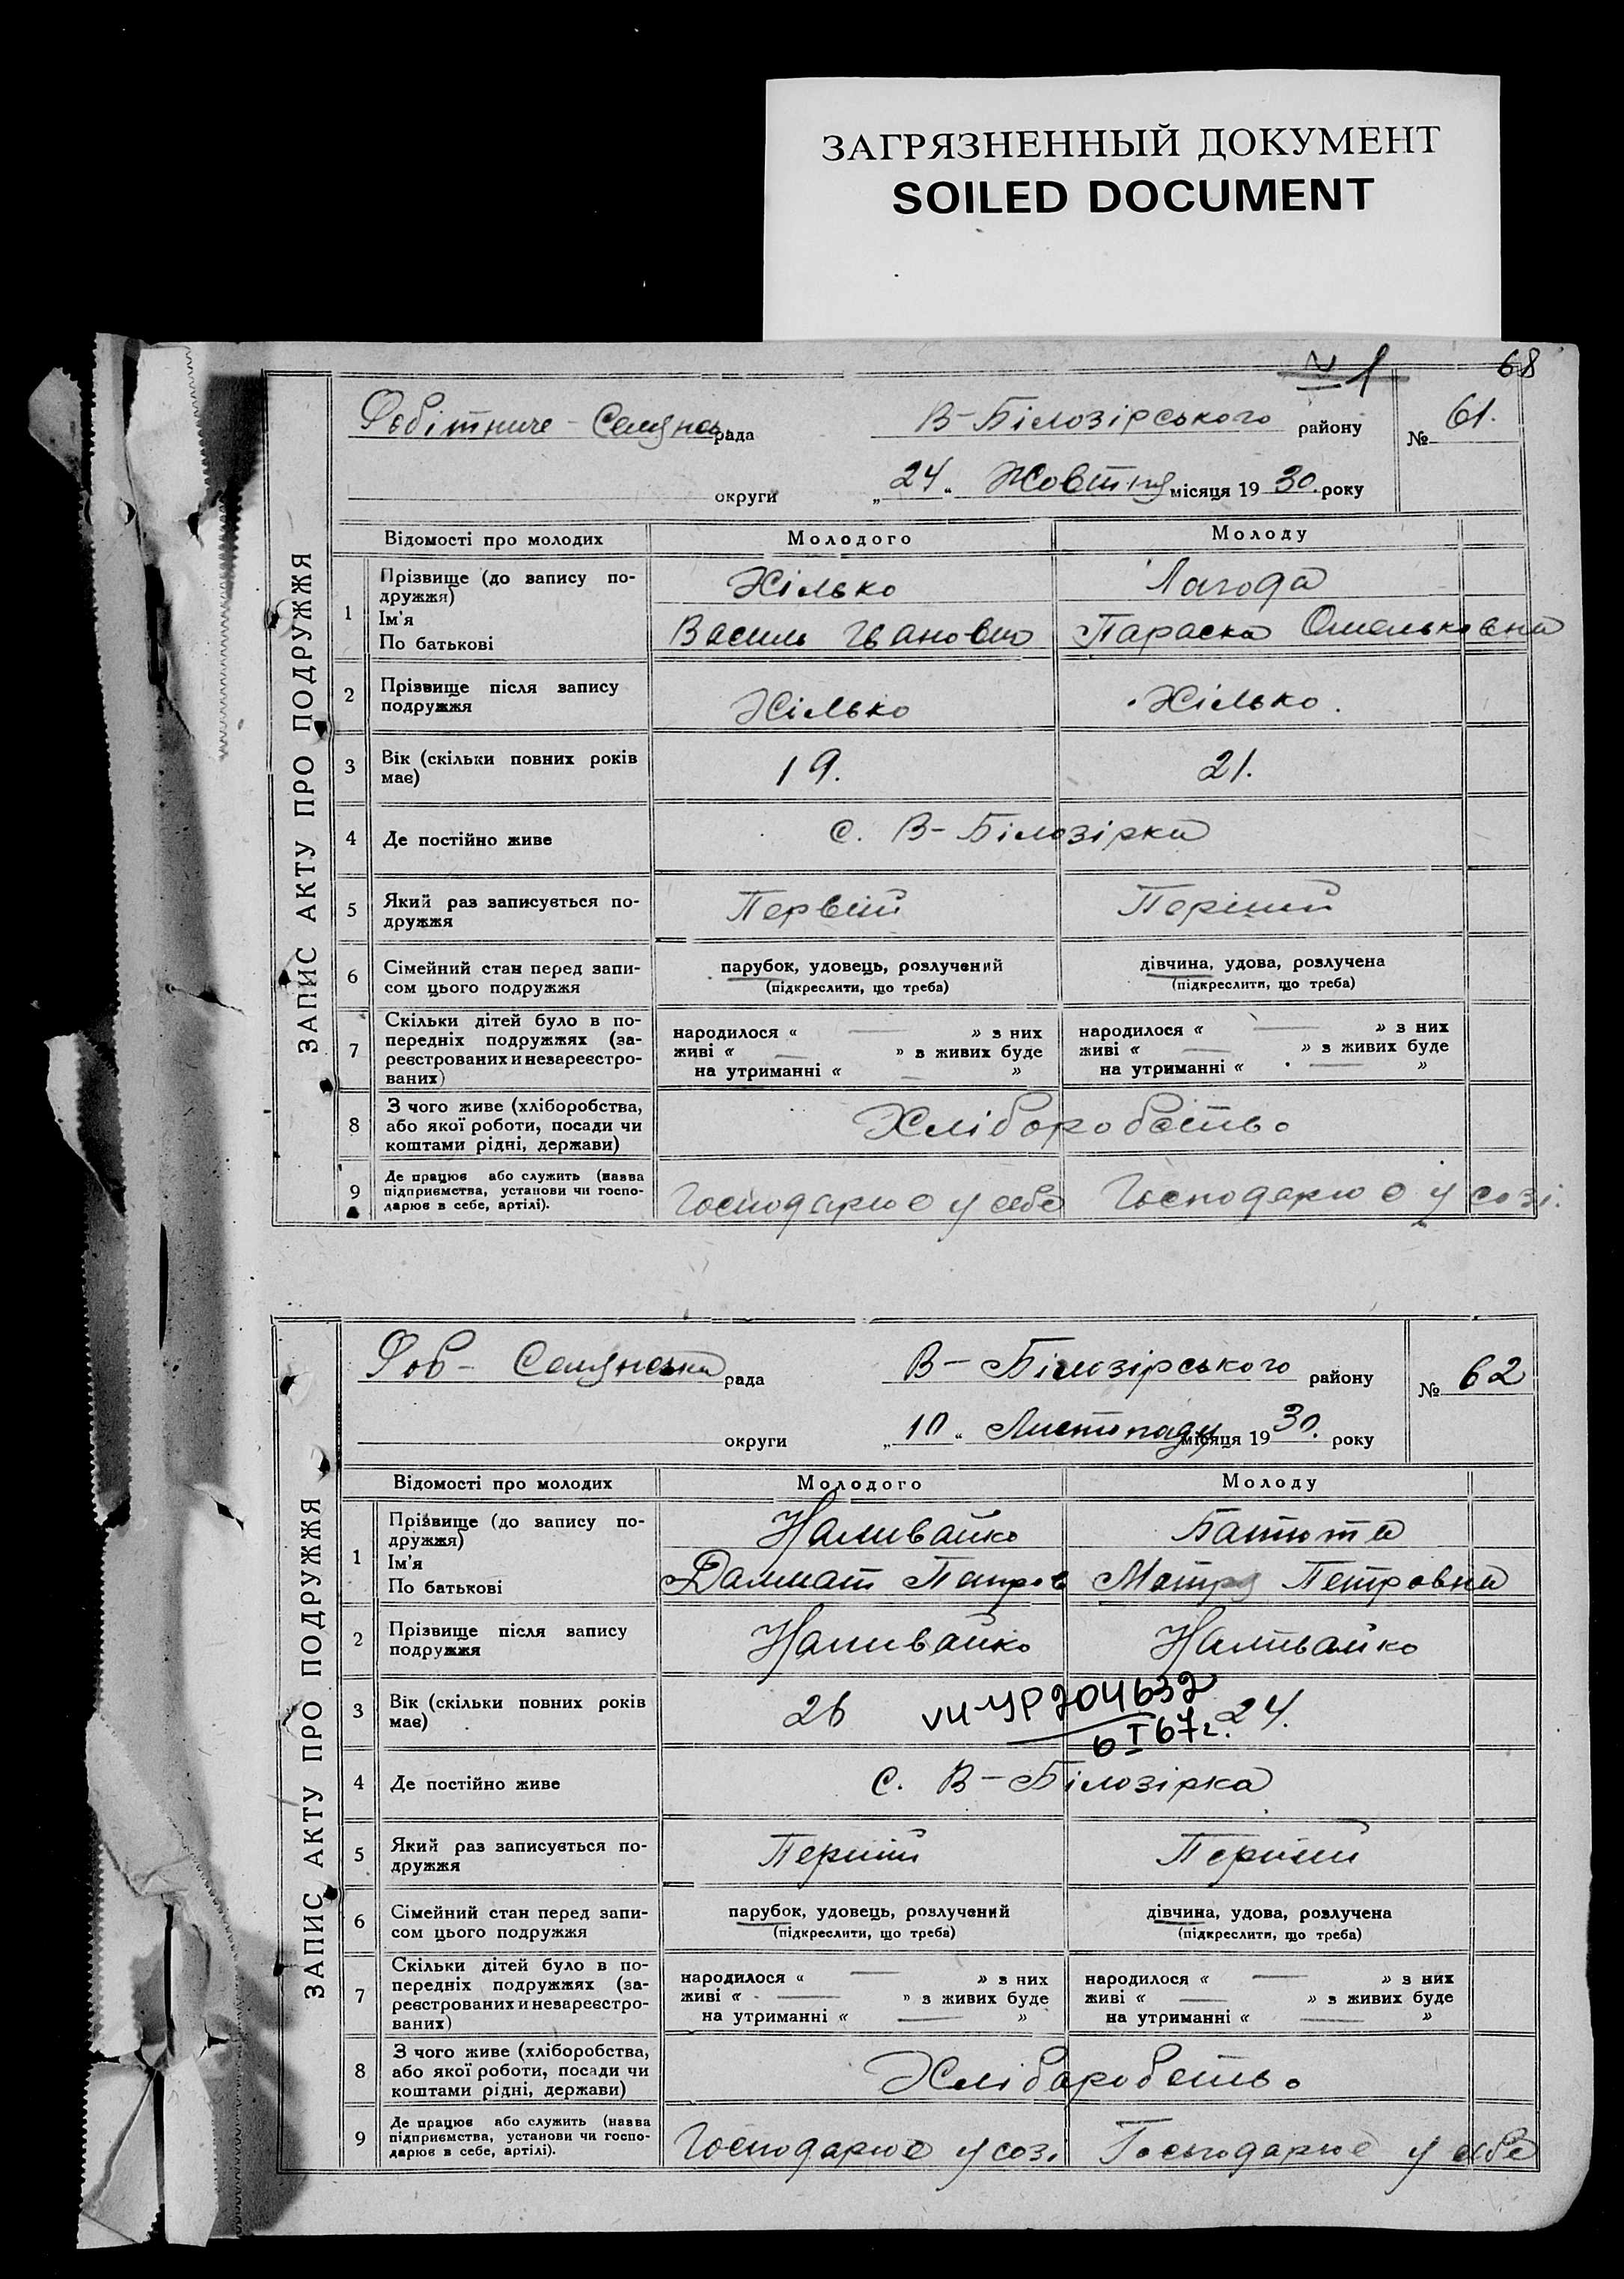 ЗАГРЯЗНЕННЫЙ ДОКУМЕНТ
SOILED DOCUMENT
№ 1
68
ЗАПИС АКТУ ПРО ПОДРУЖЖЯ
Робітниче-Селянсь. рада В-Білозірського району № 61.
округи „24" Жовтня місяця 1930. року
Відомості про молодих Молодого Молоду
1 Прізвище (до запису по-
дружжя) Хілько Лагода
Ім'я
По батькові Василь Іванович Параска Омельківна
2 Прізвище після запису
подружжя Хілько Хілько.
3 Вік (скільки повних років
має) 19. 21.
4 Де постійно живе с. В-Білозірка
5 Який раз записується по-
дружжя Первий Перший
6 Сімейний стан перед запи-
сом цього подружжя
парубок, удовець, розлучений
(підкреслити, що треба)
дівчина, удова, розлучена
(підкреслити, що треба)
7 Скільки дітей було в по-
передніх подружжях (за-
реєстрованих и незареєстро-
ваних)
народилося « — » з них
живі « — » з живих буде
на утриманні « — »
народилося « — » з них
живі « — » з живих буде
на утриманні « — »
8 З чого живе (хліборобства,
або якої роботи, посади чи
коштами рідні, держави) Хліборобство
9 Де працює або служить (назва
підприємства, установи чи госпо-
дарює в себе, артілі).
Господарює у себе Господарює у созі.
ЗАПИС АКТУ ПРО ПОДРУЖЖЯ
Роб-Селянська рада В-Білозірського району № 62
округи „10" Листопаду місяця 1930. року
Відомості про молодих Молодого Молоду
1 Прізвище (до запису по-
дружжя) Наливайко Батюта
Ім'я
По батькові Далмат Петров Мотря Петровна
2 Прізвище після запису
подружжя Наливайко Наливайко
3 Вік (скільки повних років
має) 26 24.
УР 204632
6 I 67г.
4 Де постійно живе с. В-Білозірка
5 Який раз записується по-
дружжя Перший Перший
6 Сімейний стан перед запи-
сом цього подружжя
парубок, удовець, розлучений
(підкреслити, що треба)
дівчина, удова, розлучена
(підкреслити, що треба)
7 Скільки дітей було в по-
передніх подружжях (за-
реєстрованих и незареєстро-
ваних)
народилося « — » з них
живі « — » з живих буде
на утриманні « — »
народилося « — » з них
живі « — » з живих буде
на утриманні « — »
8 З чого живе (хліборобства,
або якої роботи, посади чи
коштами рідні, держави) Хліборобство
9 Де працює або служить (назва
підприємства, установи чи госпо-
дарює в себе, артілі).
Господарює у соз. Господарює у себе